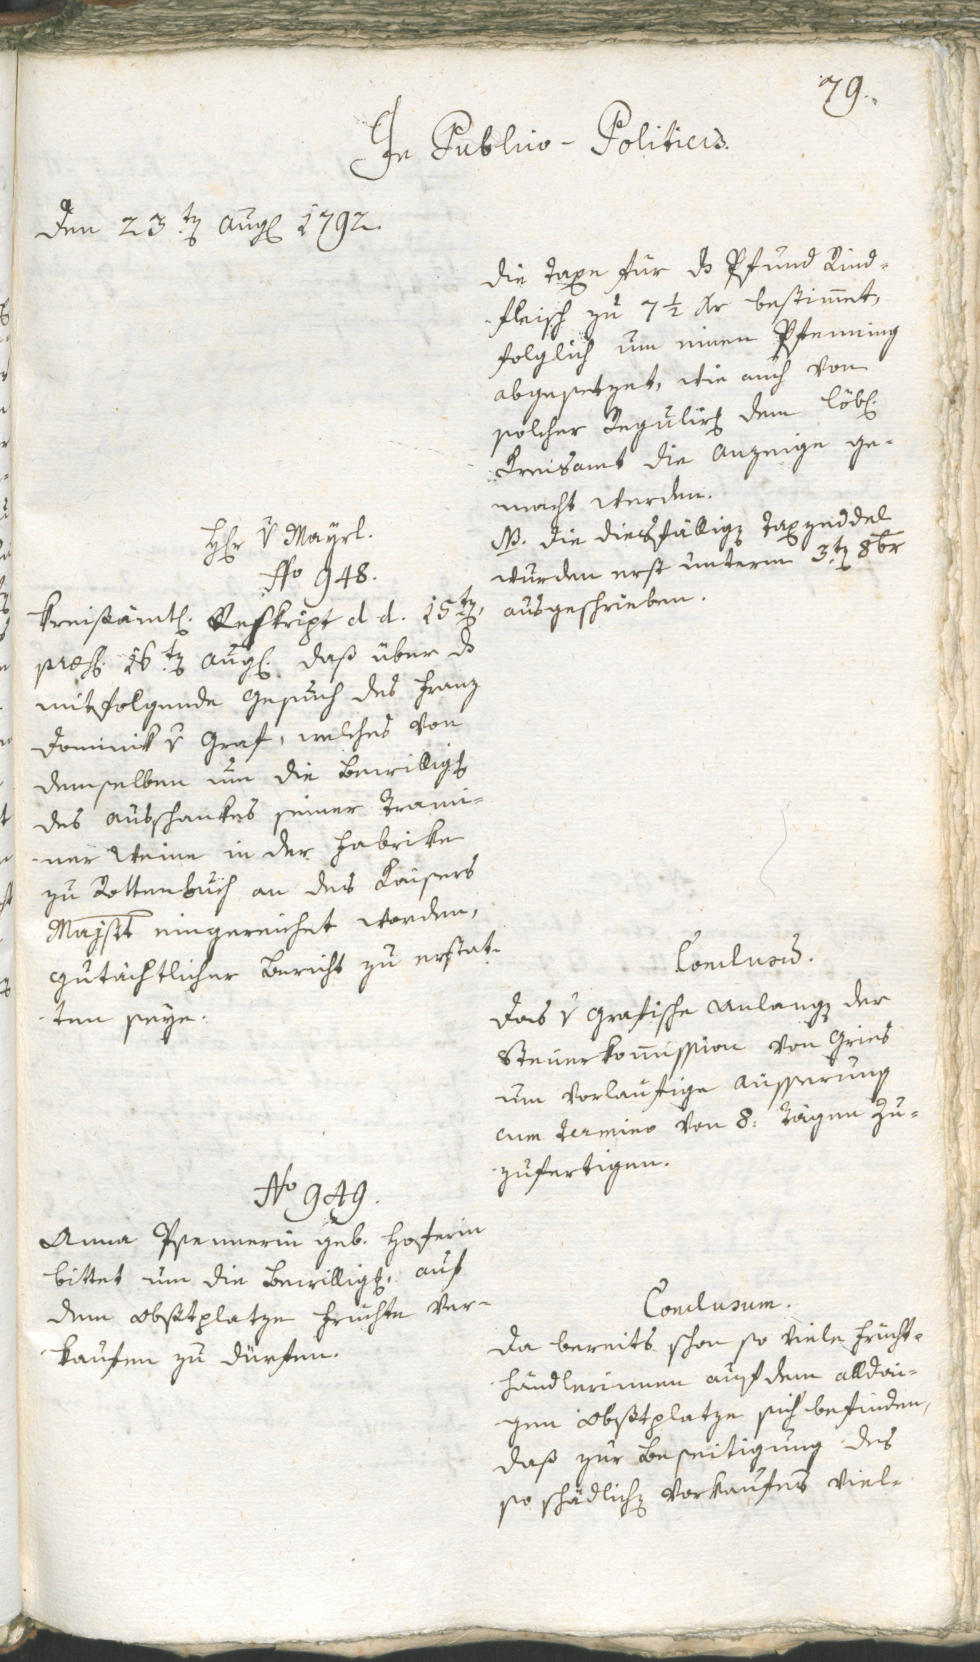 79.
In Publico-Politicis.
Den 23ten Aug. 1792.
die Taxe für ds Pfund Rind-
fleisch zu 7 1/2 kr bestimmet,
folglich um einen Pfenning
abgesetzet, wie auch von
solcher Regulirg dem löbl.
Kreisamt die Anzeige ge-
macht werden.
NB. die diesfällige Taxzeddel
wurden erst unterm 3ten 8br
ausgeschrieben.
Hr v Mayrl.
No 948.
Kreisämtl. Reskript d d. 15ten,
præs. 16ten Aug. daß über ds
mitfolgende Gesuch des Franz
Dominik v Graf, welches von
demselben um die Bewilligg
des Ausschankes seiner Trami-
ner Weine in der Fabrike
zu Rottenbuch an des Kaisers
Majstt eingereichet worden,
gutächtlicher Bericht zu erstat-
ten seye.
Conclusum.
Das v Grafische Anlangen der
Steuerkommission von Gries
um vorlaufige Äusserung
cum Termino von 8: Tägen zu-
zufertigen.
No 949.
Anna Psennerin geb. Hoferin
bittet um die Bewilligg, auf
dem Obstplatze Früchte ver-
kaufen zu dürfen.
Conclusum.
Da bereits schon so viele Frücht-
händlerinnen auf dem alldai-
gen Obstplatze sich befinden,
daß zur Beseitigung des
so schädlichen Vorkaufes viel-